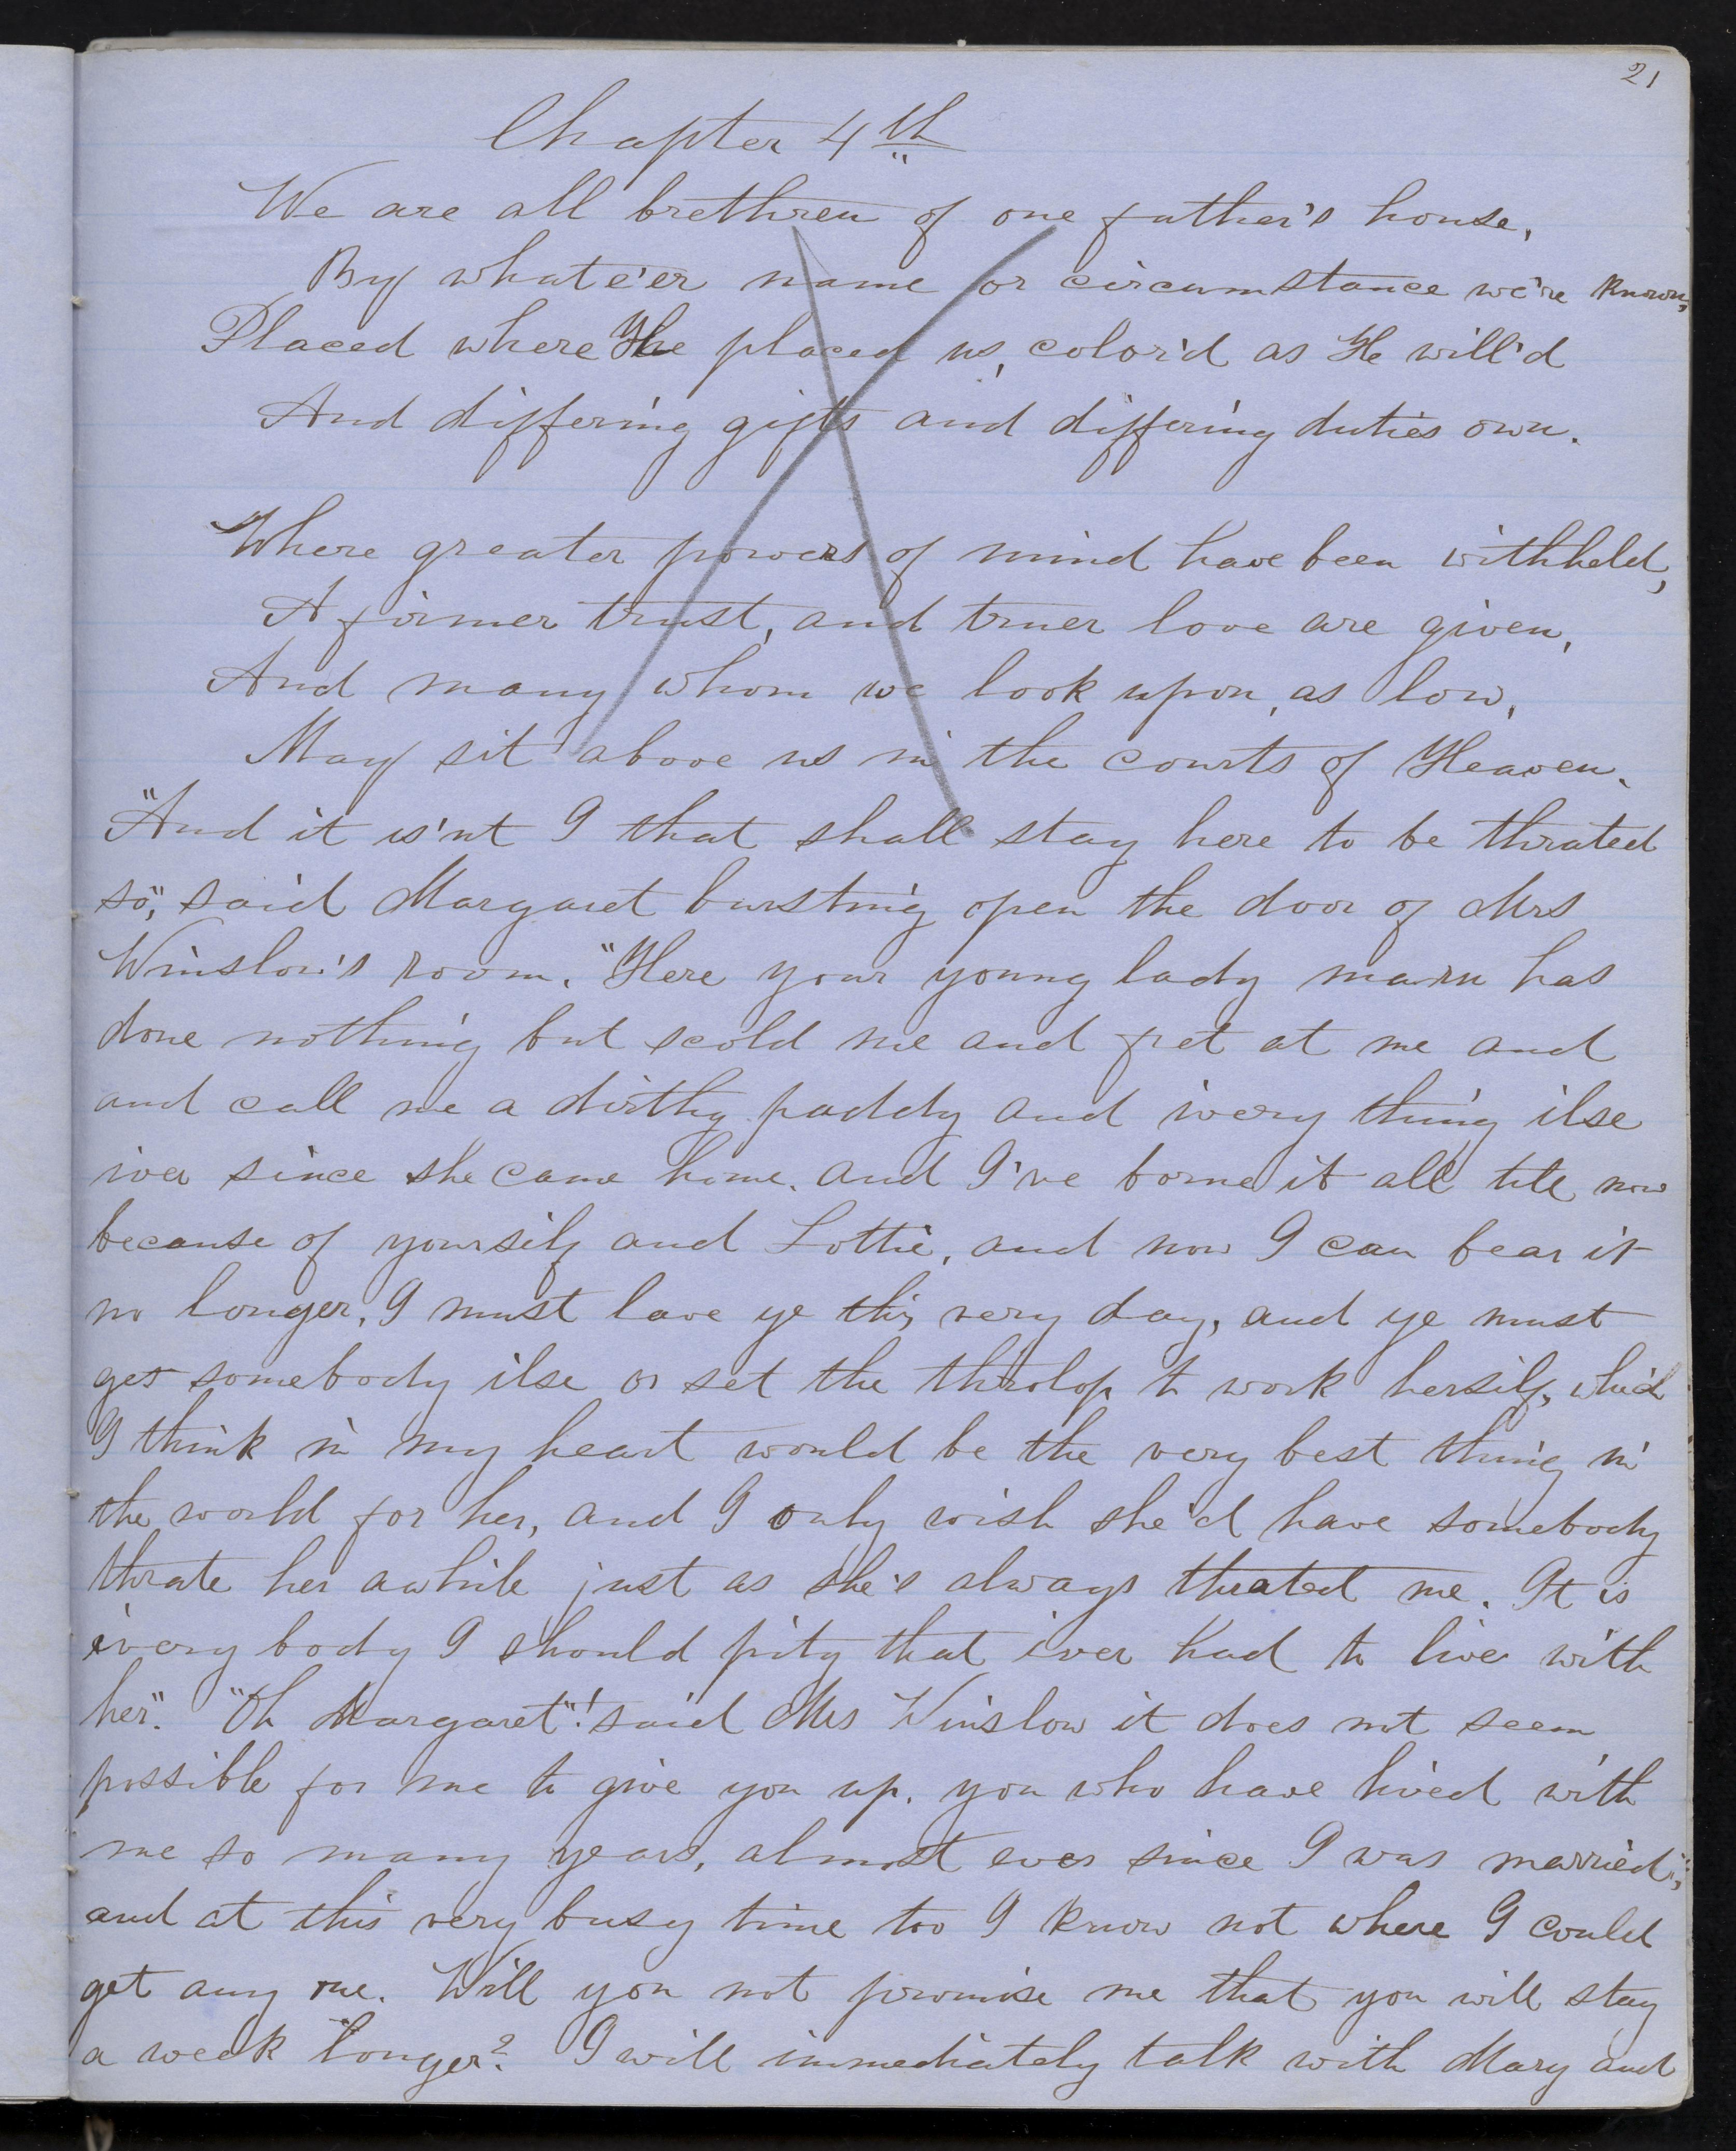 21
Chapter 4th
We are all brethren of one father's house,
By whate'er name or circumstance we're known,
Placed where He placed us, color'd as He will'd
And differing gifts and differing duties own.
Where greater powers of mind have been withheld,
A firmer trust, and truer love are given,
And many whom we look upon, as low,
May sit above us in the courts of Heaven.
"And it is'nt I that shall stay here to be thrated
so", said Margaret bursting open the door of Mrs
Winslow's room. "Here your young lady marm has
done nothing but scold me and fret at me and
and call me a dirthy paddy and ivery thing ilse
iver since she came home. and I've borne it all till now
because of yoursilf and Lottie, and now I can bear it
no longer, I must lave ye this very day, and ye must
get somebody ilse or set the throlop to work hersilf, which
I think in my heart would be the very best thing in
the world for her, and I only wish she'd have somebody
thrate her awhile just as she's always thrated me. It is
ivery body I should pity that iver had to live with
her". "Oh Margaret"! said Mrs Winslow it does not seem
possible for me to give you up. you who have lived with
me so many years, almost ever since I was married;
and at this very busy time too I know not where I could
get any one. Will you not promise me that you will stay
a week longer? I will immediately talk with Mary and